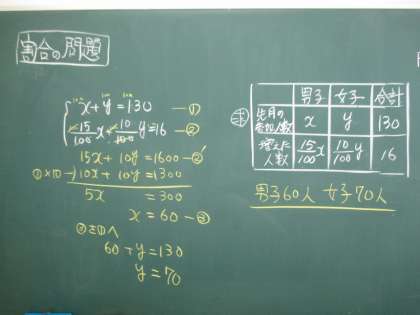 割合の問題
x+y=130 ―①
15/100x+10/100y=16 ―②
15x+10y=1600 ―②'
①×10→10x+10y=1300
5x =300
x=60 ―③
③を①へ
60+y=130
y=70
男子 女子 合計
先月の参加人数 x y 130
増えた人数 15/100x 10/100y 16
男子60人 女子70人